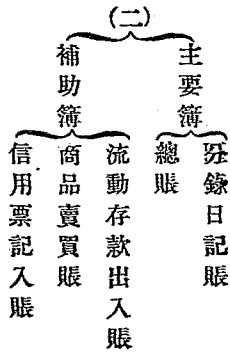 (二)
主要簿
分錄日記賬
總賬
補助簿
流動存款出入賬
商品賣買賬
信用票記入賬